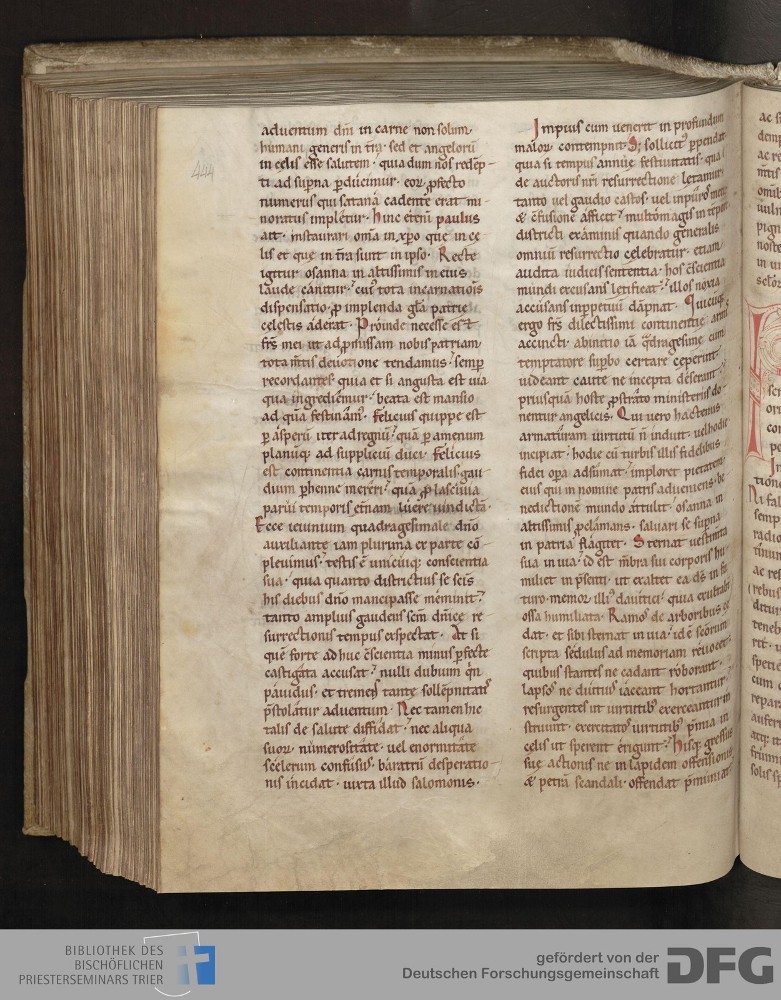 444
aduentum dñi in carne non solum·
humani generis in t̃ris· sed et angelorũ
in celis esse salutem· quia dum nos redẽp-
ti ad sup̃na p̱ducimur· eorꝫ ꝓfecto
numerus qui satana cadente erat mi-
noratus impletur· Hinc etenĩ paulus
ait· instaurari om̃a in xp̃o que in ce-
lis et que in t̃ra sunt in ipso· Recte
igitur osanna in altissimis in eius
laude canitur· cui᷒ tota incarnationis
dispensatio· ꝓ implenda gl̃a patrie
celestis aderat· Proinde necesse est
frs̃ mei ut ad ꝓmissam nobis patriam
tota m̃tis deuotione tendamus· semp̱
recordantes quia et si angusta est uia
qua ingrediemur· beata est mansio
ad quã festinam᷒· Felicius quippe est
p̱ asperũ iter ad regnũ· quã p̱ amenum
planũqꝫ ad suppliciũ duci· Felicius
est continentia carnis temporalis· gau-
dium p̱henne mereri· quã ꝓ lasciuia
parui temporis et̃nam luere uindictã·
Ecce ieiunium quadragesimale dño
auxiliante iam plurima ex parte cõ-
pleuimus· testis ẽ unicuiqꝫ conscientia
sua· quia quanto districtius se seis
his diebus dño mancipasse meminit·
tanto amplius gaudens sc̃m dñice re-
surrectionis tempus exspectat· At si
quẽ forte adhuc c̃scientia minus p̱fecte
castigata accusat· nulli dubium q̃n
pauidus· et tremens tante sollẽpnitatis
p̃stolatur aduentum· Nec tamen hic
talis de salute diffidat· nec aliqua
suorꝫ numerositate· uel enormitate
scelerum confusus· baratrũ desperatio-
nis incidat· iuxta illud salomonis·
Impius cum uenerit in profundum
malorꝫ contempnit· Sꝫ sollicit᷒ p̱pendat
quia si tempus annuẹ festiuitatis· qua
de auctoris nr̃i resurrectione letamur·
tanto uel gaudio castos· uel inpuros metu
& c̃fusione afficit· multo magis in tempore
districti examinis quando generalis
omniũ resurrectio celebratur· etiam
audita iudicis sententia· hos c̃scientia
mundi excusans letificat· illos noxia
accusans inp̱petuũ dãpnat· Quicũqꝫ
ergo frs̃ dilectissimi continentie armis
accincti· ab initio iã q̃dragesime cum
temptatore sup̱bo certare ceperunt·
uideant caute ne incepta deserant·
priusquã hoste ꝓstrato ministeriis do-
nentur angelicis· Qui uero hactenus
armaturam uirtutũ ñ induit· uel hodie
incipiat· hodie cũ turbis illis fidelibus
fidei op̱a adsumat· imploret pietatem
eius qui in nomine patris adueniens· be-
nedictionẽ mundo attulit· osanna in
altissimis ꝓclamans· saluari se sup̃na
in patria flagitet· Sternat uestim̃ta
sua in uia· id est m̃bra sui corporis hu-
miliet in p̃senti· ut exaltet ea ds̃ in fu-
turo· memor illi᷒ dauitici· quia exultabũt
ossa humiliata· Ramos de arboribus ce-
dat· et sibi sternat in uia· id ẽ sc̃orum
scripta sedulus ad memoriam reuocet·
quibus stantes ne cadant roborant·
lapsos ne diutius iaceant hortantur·
resurgentes ut uirtutib᷒ exerceantur in
struunt· exercitatos uirtutib᷒ p̃mia in
celis ut sperent erigunt· Hisqꝫ gressus
sue actionis ne in lapidem offensionis
& petrã scandali· offendat p̃muniat·
BIBLIOTHEK DES
BISCHÖFLICHEN
PRIESTERSEMINARS TRIER
gefördert von der
Deutschen Forschungsgemeinschaft
DFG